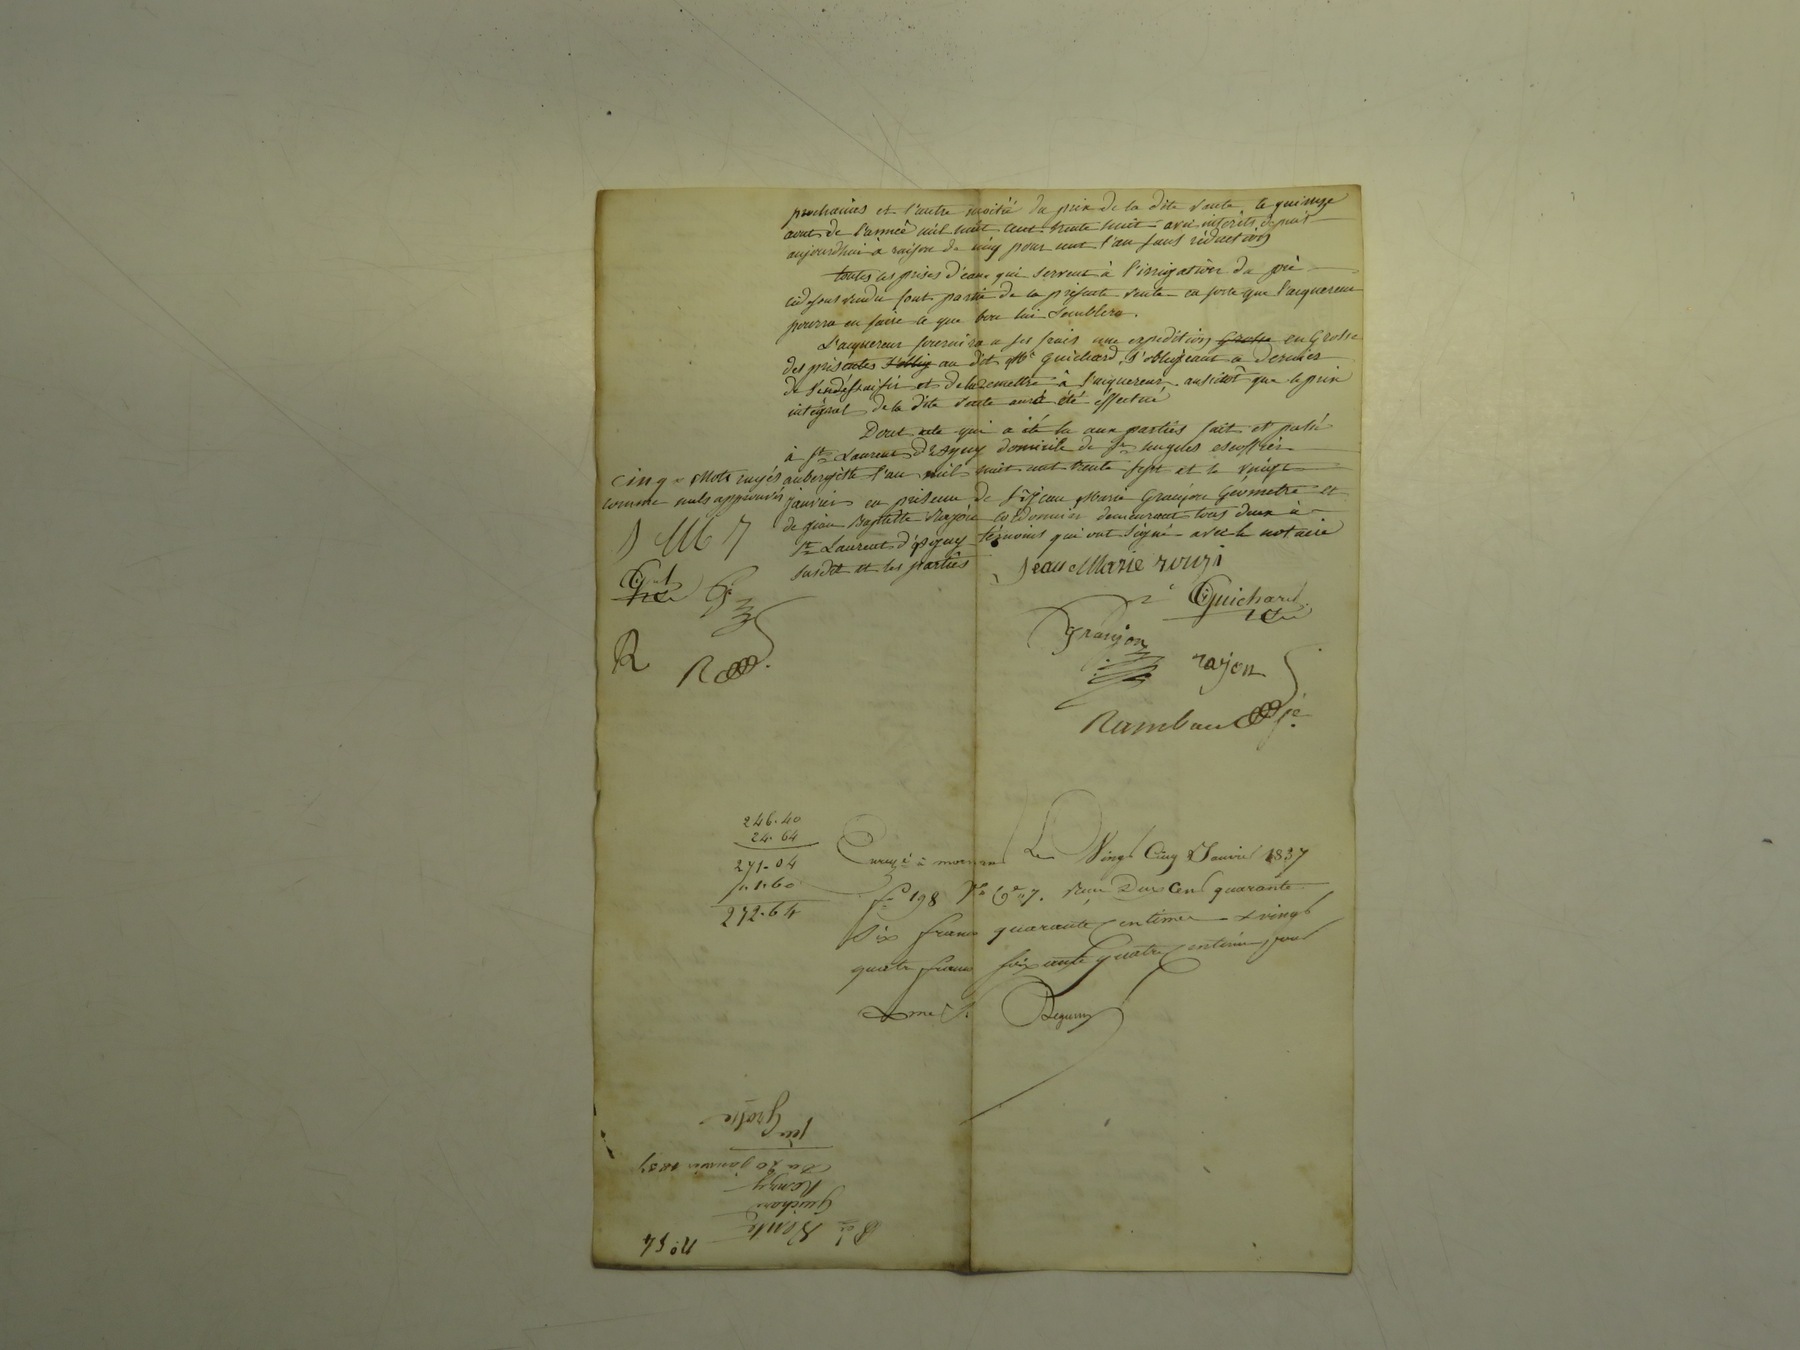 prochaines et l'autre moitié du prix de la dite vente le quinze
aout de l'année mil huit cent trente huit avec intérêts depuis
aujourdhui à raison de cinq pour cent l'an sans réduction
toutes les prises d'eaux qui servent à l'irrigation du pré
cidessus vendu font partie de la présente vente en sorte que l'acquereur
pourra en faire ce que bon lui semblera.
L'acquereur fournira a ses frais une expédition Grosse en Grosse
des présentes s'oblig au dit Me Guichard, s'obligeant ce dernier
de s'en déssaisir et de la remettre à l'acquereur ausitôt que le prix
intégral de la dite vente aura été effectué
Dont acte qui a été lu aux parties fait et passé
à St Laurent D'agny domicile de Sr hugues escoffier
aubergiste l'an mil huit cent trente sept et le vingt
janvier en présence de Sr jean Marie Granjon Géometre et
de jean Baptiste Rajon cordonnier demeurant tous deux a
St Laurent d'agny témoins qui ont signé avec le notaire
susdit et les parties
cinq mots rayés
comme nuls approuvés
J M R
G
R
R
Jean Marie ronzi
Guichard
Granjon
rajon
Rambaud
246.40
24.64
271.04
1.60
272.64
Enregé à mornant Le Vingt Cinq Janvier 1837
fo 198 Vo Ce 7. Reçu Deux Cent quarante
Six francs quarante centimes & vingt
quatre francs soixante quatre centimes pour
Deguerry
No 54
Vente
Guichard
Ronzy
Du 20 janvier 1837
1ère Grosse